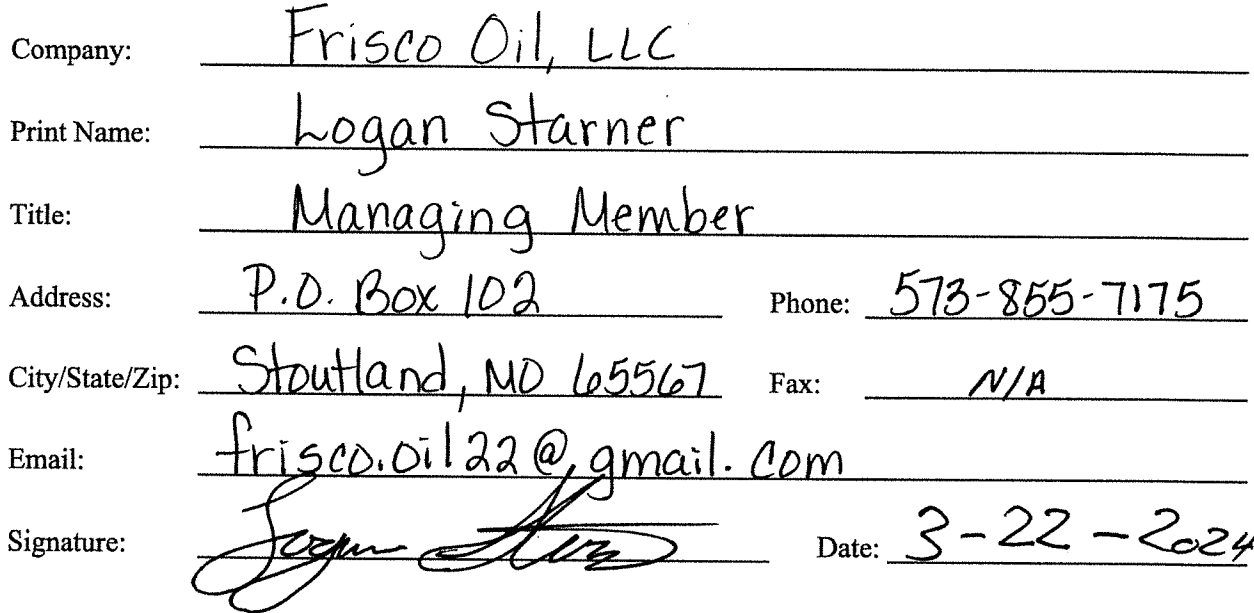 Company: Frisco Oil, LLC
Print Name: Logan Starner
Title: Managing Member
Address: P.O. Box 102 Phone: 573-855-7175
City/State/Zip: Stoutland, MO 65567 Fax: N/A
Email: frisco.oil22@gmail.com
Signature: Logan Starner
Date: 3-22-2024